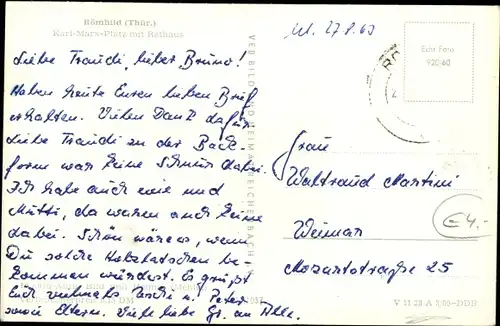 Römhild (Thür.)
Karl-Marx-Platz mit Rathaus
Liebe Traudi, lieber Bruno!
Haben heute Euren lieben Brief
erhalten. Vielen Dank dafür
Liebe Traudi zu der Back-
form war keine Schnur dabei.
Ich habe auch eine und
Mutti, da waren auch keine
dabei. Schön wäre es, wenn
Du solche Holzlatschen be-
kommen würdest. Es grüßt
Euch vielmals und Peter
sowie Eltern. Viele liebe Gr. an Alle.
27.8.60
Echt Foto
920/60
VEB BILD UND HEIMAT REICHENBACH
Frau
Waltraud Martini
Weimar
Mozartstraße 25
€4,-
V 11 28 A 3,00-DDR